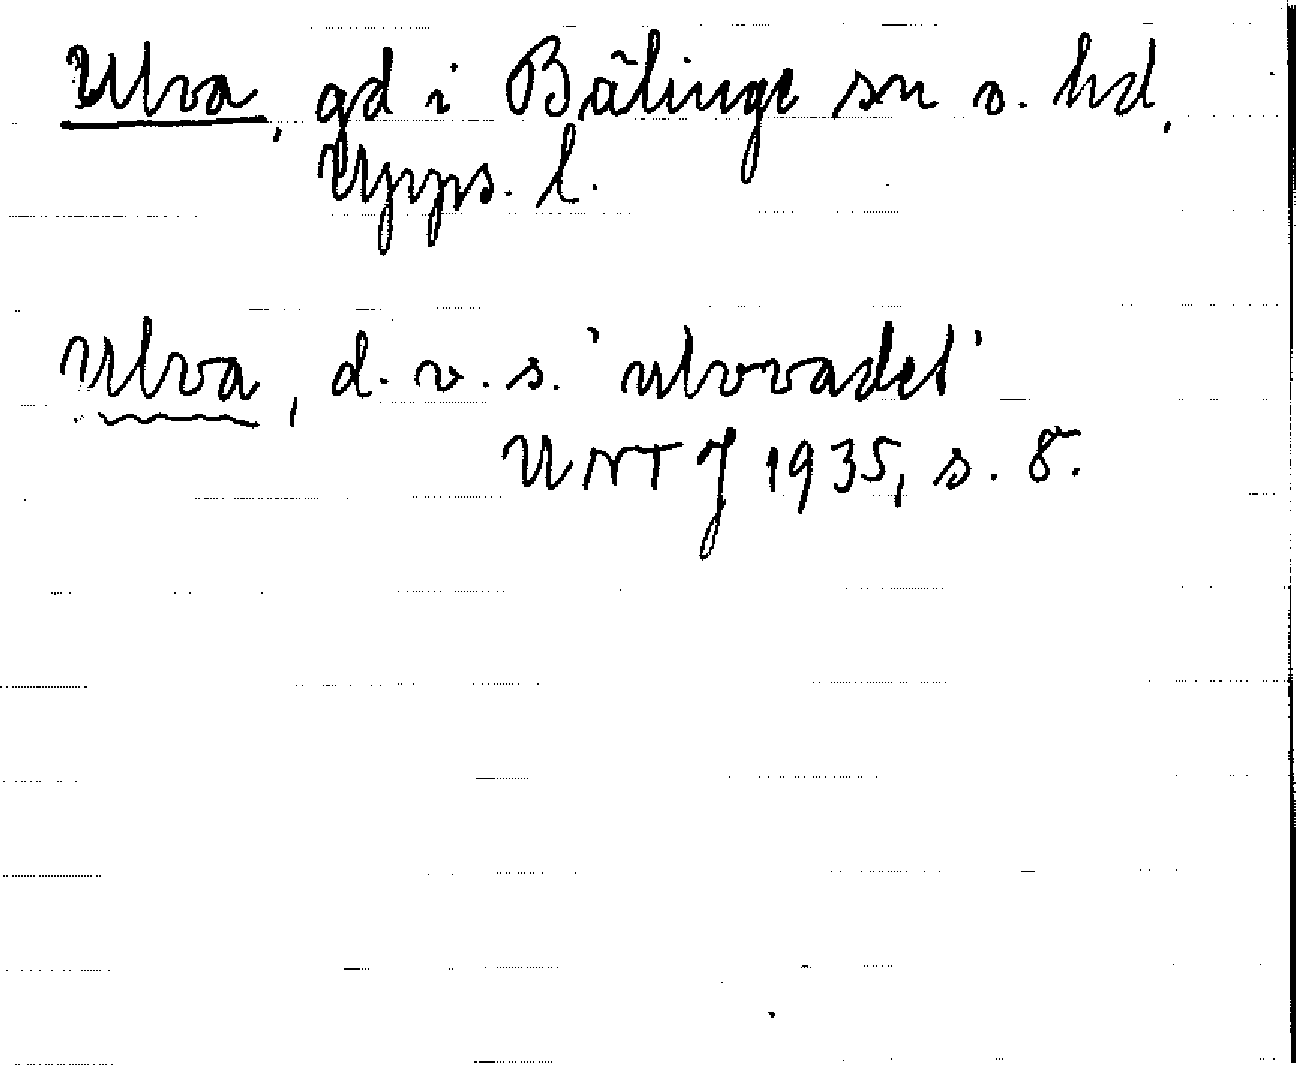 Ulva, gd i Bälinge sn o. hd,
Upps. l.
Ulva, d. v. s. 'ulvvadet'
UNTJ 1935, s. 8.